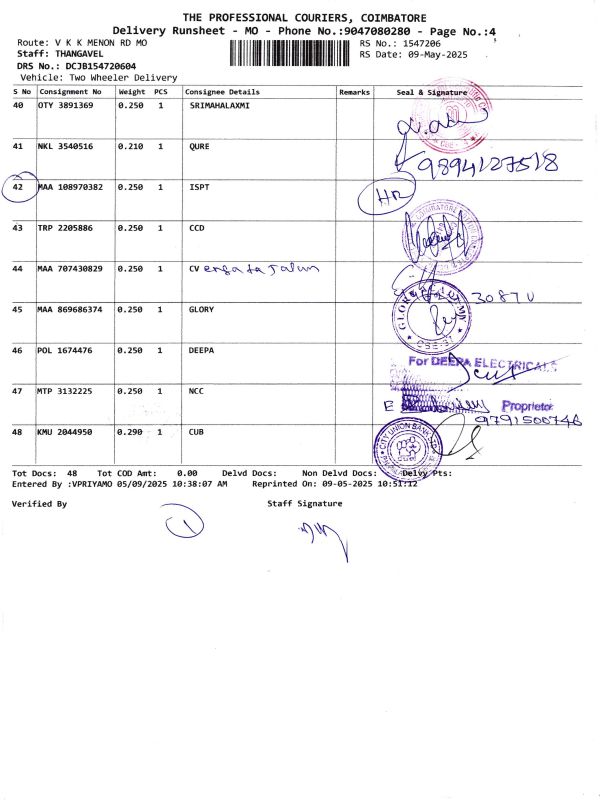 THE PROFESSIONAL COURIERS, COIMBATORE
Delivery Runsheet - MO - Phone No.:9047080280 - Page No.:4
Route: V K K MENON RD MO RS No.: 1547206
Staff: THANGAVEL RS Date: 09-May-2025
DRS No.: DCJB154720604
Vehicle: Two Wheeler Delivery
S No Consignment No Weight PCS Consignee Details Remarks Seal & Signature
40 OTY 3891369 0.250 1 SRIMAHALAXMI
41 NKL 3540516 0.210 1 QURE 9894127518
42 MAA 108970382 0.250 1 ISPT HR
43 TRP 2205886 0.250 1 CCD
44 MAA 707430829 0.250 1 CV
45 MAA 869686374 0.250 1 GLORY 30870
46 POL 1674476 0.250 1 DEEPA For DEEPA ELECTRICALS
47 MTP 3132225 0.250 1 NCC Proprietor
9791500748
48 KMU 2044950 0.290 1 CUB CITY UNION BANK LTD
Tot Docs: 48 Tot COD Amt: 0.00 Delvd Docs: Non Delvd Docs: Delvy Pts:
Entered By :VPRIYAMO 05/09/2025 10:38:07 AM Reprinted On: 09-05-2025 10:51:12
Verified By Staff Signature
1